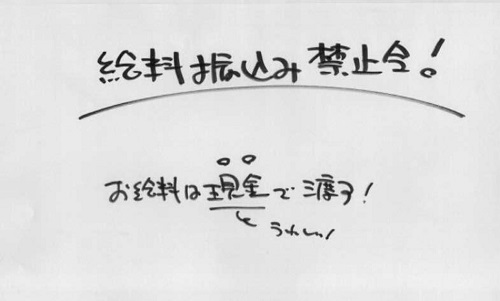 給料振込み禁止令!
お給料は現金で渡す!
うれしい!